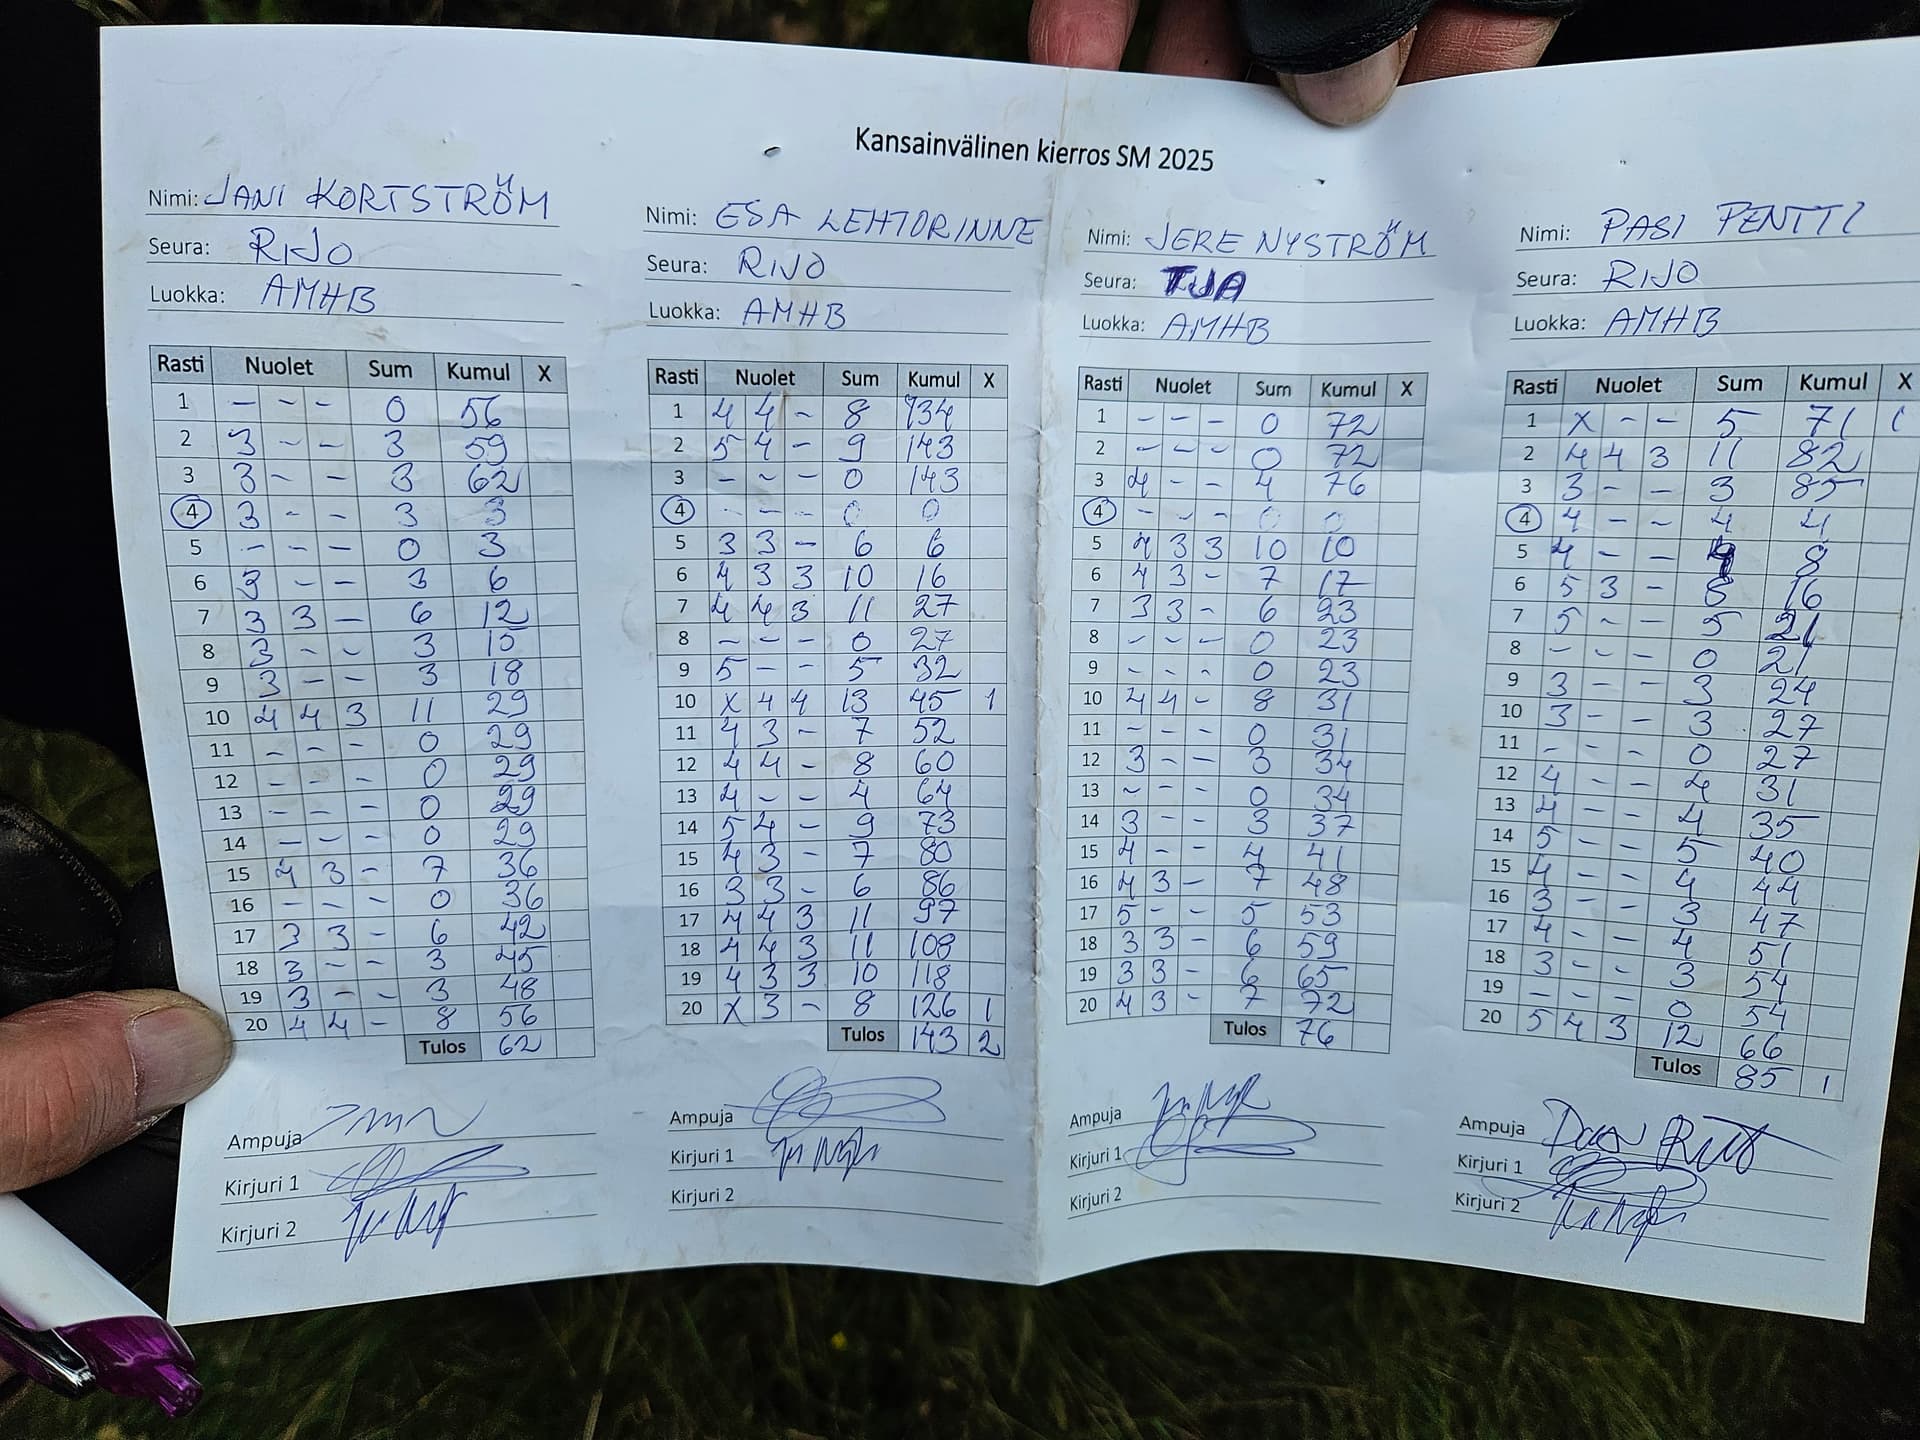 Kansainvälinen kierros SM 2025
Nimi: JANI KORTSTRÖM
Seura: RIJO
Luokka: AMHB
Rasti Nuolet Sum Kumul X
1 - - - 0 56
2 3 - - 3 59
3 3 - - 3 62
4 3 - - 3 3
5 - - - 0 3
6 3 - - 3 6
7 3 3 - 6 12
8 3 - - 3 15
9 3 - - 3 18
10 4 4 3 11 29
11 - - - 0 29
12 - - - 0 29
13 - - - 0 29
14 - - - 0 29
15 4 3 - 7 36
16 - - - 0 36
17 3 3 - 6 42
18 3 - - 3 45
19 3 - - 3 48
20 4 4 - 8 56
Tulos 62
Ampuja
Kirjuri 1
Kirjuri 2
Nimi: ESA LEHTORINNE
Seura: RIJO
Luokka: AMHB
Rasti Nuolet Sum Kumul X
1 4 4 - 8 134
2 5 4 - 9 143
3 - - - 0 143
4 - - - 0 0
5 3 3 - 6 6
6 4 3 3 10 16
7 4 4 3 11 27
8 - - - 0 27
9 5 - - 5 32
10 X 4 4 13 45 1
11 4 3 - 7 52
12 4 4 - 8 60
13 4 - - 4 64
14 5 4 - 9 73
15 4 3 - 7 80
16 3 3 - 6 86
17 4 4 3 11 97
18 4 4 3 11 108
19 4 3 3 10 118
20 X 3 - 8 126 1
Tulos 143 2
Ampuja
Kirjuri 1
Kirjuri 2
Nimi: JERE NYSTRÖM
Seura: TJA
Luokka: AMHB
Rasti Nuolet Sum Kumul X
1 - - - 0 72
2 - - - 0 72
3 4 - - 4 76
4 - - - 0 0
5 4 3 3 10 10
6 4 3 - 7 17
7 3 3 - 6 23
8 - - - 0 23
9 - - - 0 23
10 4 4 - 8 31
11 - - - 0 31
12 3 - - 3 34
13 - - - 0 34
14 3 - - 3 37
15 4 - - 4 41
16 4 3 - 7 48
17 5 - - 5 53
18 3 3 - 6 59
19 3 3 - 6 65
20 4 3 - 7 72
Tulos 76
Ampuja
Kirjuri 1
Kirjuri 2
Nimi: PASI PENTTI
Seura: RIJO
Luokka: AMHB
Rasti Nuolet Sum Kumul X
1 X - - 5 71 1
2 4 4 3 11 82
3 3 - - 3 85
4 4 - - 4 4
5 4 - - 4 8
6 5 3 - 8 16
7 5 - - 5 21
8 - - - 0 21
9 3 - - 3 24
10 3 - - 3 27
11 - - - 0 27
12 4 - - 4 31
13 4 - - 4 35
14 5 - - 5 40
15 4 - - 4 44
16 3 - - 3 47
17 4 - - 4 51
18 3 - - 3 54
19 - - - 0 54
20 5 4 3 12 66
Tulos 85 1
Ampuja
Kirjuri 1
Kirjuri 2